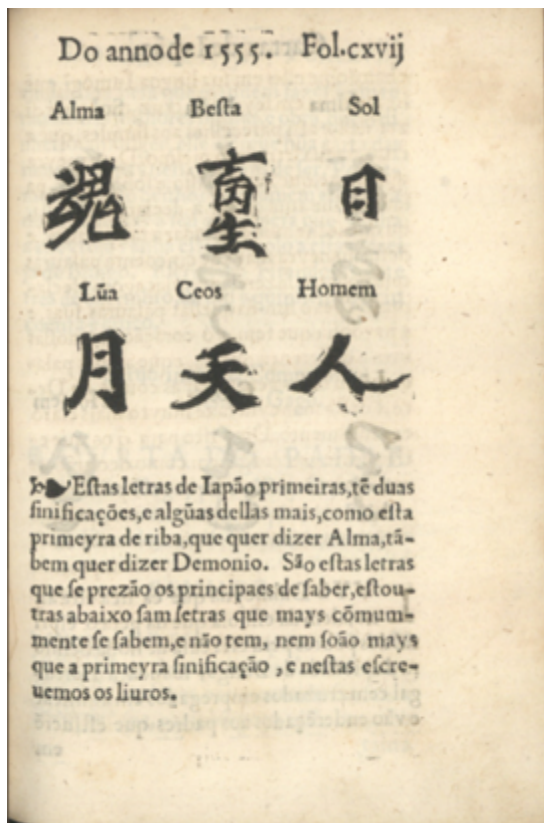 Do anno de 1555. Fol.cxvij
Alma Besta Sol
魂 畜生 日
Lũa Ceos Homem
月 天 人
Estas letras de Iapão primeiras,tẽ duas
sinificações,e algũas dellas mais,como esta
primeyra de riba,que quer dizer Alma,tã-
bem quer dizer Demonio. São estas letras
que se prezão os principaes de saber,estou-
tras abaixo sam letras que mays cõmum-
mente se sabem,e não tem, nem soão mays
que a primeyra sinificação ,e nestas escre-
uemos os liuros.